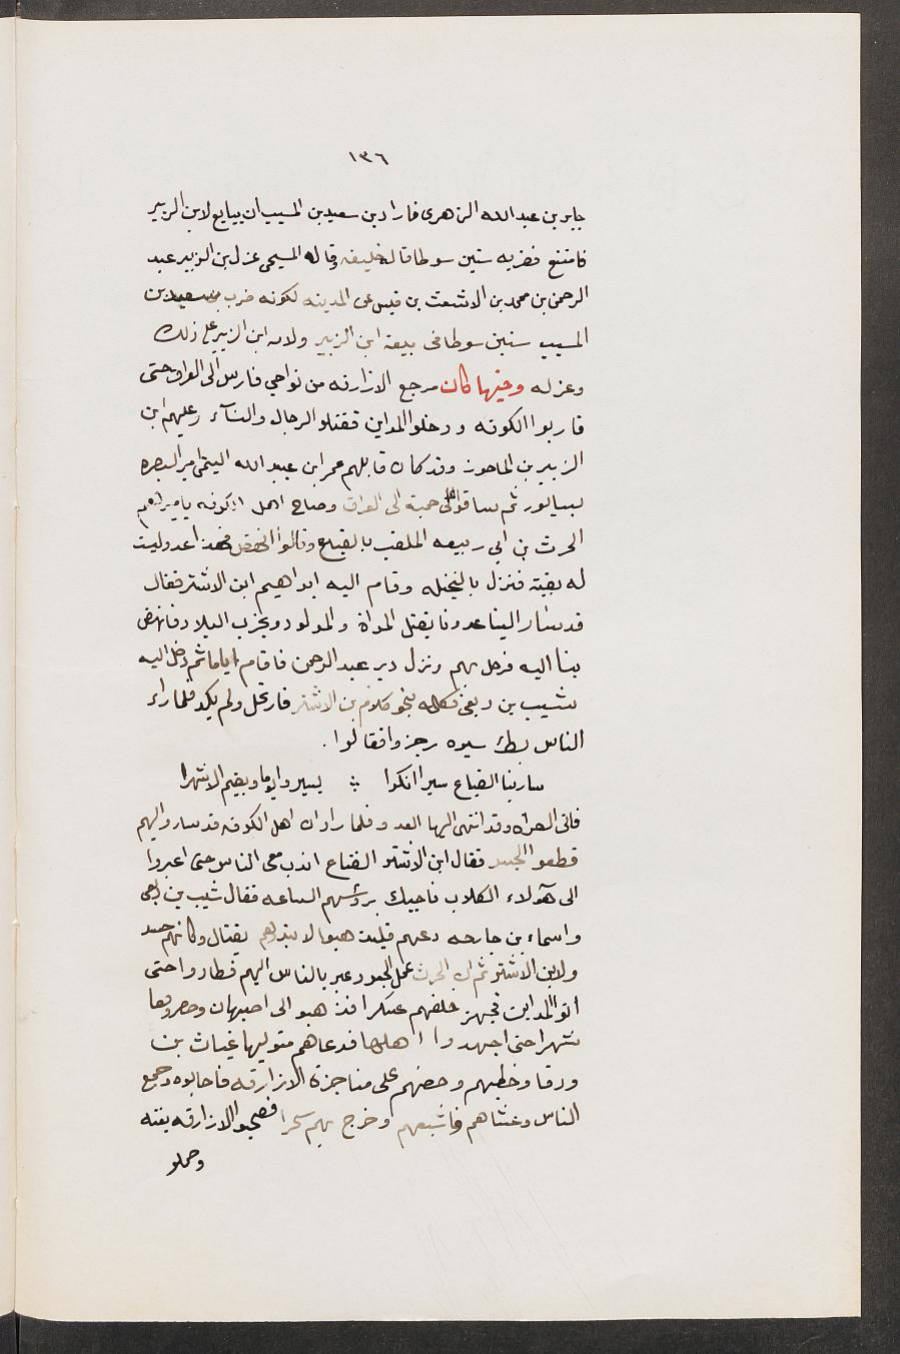 ١٣٦
جابر بن عبد الله الزهرى فاراد بن سعيد بن المسيب ان يبايع لابن الزبير
فامتنع فضربه ستين سوطا قاله خليفه وقاله المسبحى عزل بن الزبير عبد
الرحمن بن محمد بن الاشعث بن قيس عن المدينه لكونه ضرب سعيد بن
المسيب ستين سوطا فى بيعة ابن الزبير ولامه ابن الزبير على ذلك
وعزله وفيها كان مرجع الازارقه من نواحي فارس الى العراق حتى
قاربوا الكوفه ودخلوا المداين فقتلو الرجال والنسآء وعليهم ابن
الزبير بن الماحوز وقد كان قابلهم عمر ابن عبيد الله التيمى امير البصره
بسابور ثم ساقوا على حمية الى العراق وصاح اهل الكوفه باميرهم
الحرث بن ابي ربيعه الملقب بالقباع وقالوا انهض فهذا عدو ليست
له بقية فنزل بالنخيله وقام اليه ابراهيم ابن الاشتر فقال
قد سار الينا عدونا يقتل المراة والمولود ويخرب البلاد فانهض
بنا اليه فرحل بهم ونزل دير عبد الرحمن فاقام اياما ثم دخل اليه
شبيب بن ربعى فكلمه بنحو كلام بن الاشتر فارتحل ولم يكد فلما راء
الناس بطء سيره رجزوا فقالوا .
سار بنا القباع سيرا انكرا ⁘ يسير يوما ويقيم الاشهرا
فاتى الصراه وقد انتهى اليها العدو فلما راوا ان اهل الكوفه قد ساروا اليهم
قطعوا الجسر فقال ابن الاشتر القباع اندب معى الناس حتى اعبر وا
الى هآولاء الكلاب فاجيك برؤسهم الساعه فقال شبيب بن ربعى
واسماء بن خارجه دعهم فليذهبوا لا تبدلهم بقتال وكانهم حسد
ولابن الاشتر ثم ان الحرث عمل الجسور عبر بالناس اليهم فطاروا حتى
اتوا المداين فجهز خلفهم عسكرا فذهبوا الى اصبهان وحصروها
شهرا حتى اجهدوا اهلها فدعاهم متوليها غياث بن
ورقا وخطبهم وحضهم على مناجزة الازارقه فاجابوه وجمع
الناس وعشاهم فاشبعهم وخرج بهم سحرا فصبحوا الازارقه بغته
وحملو